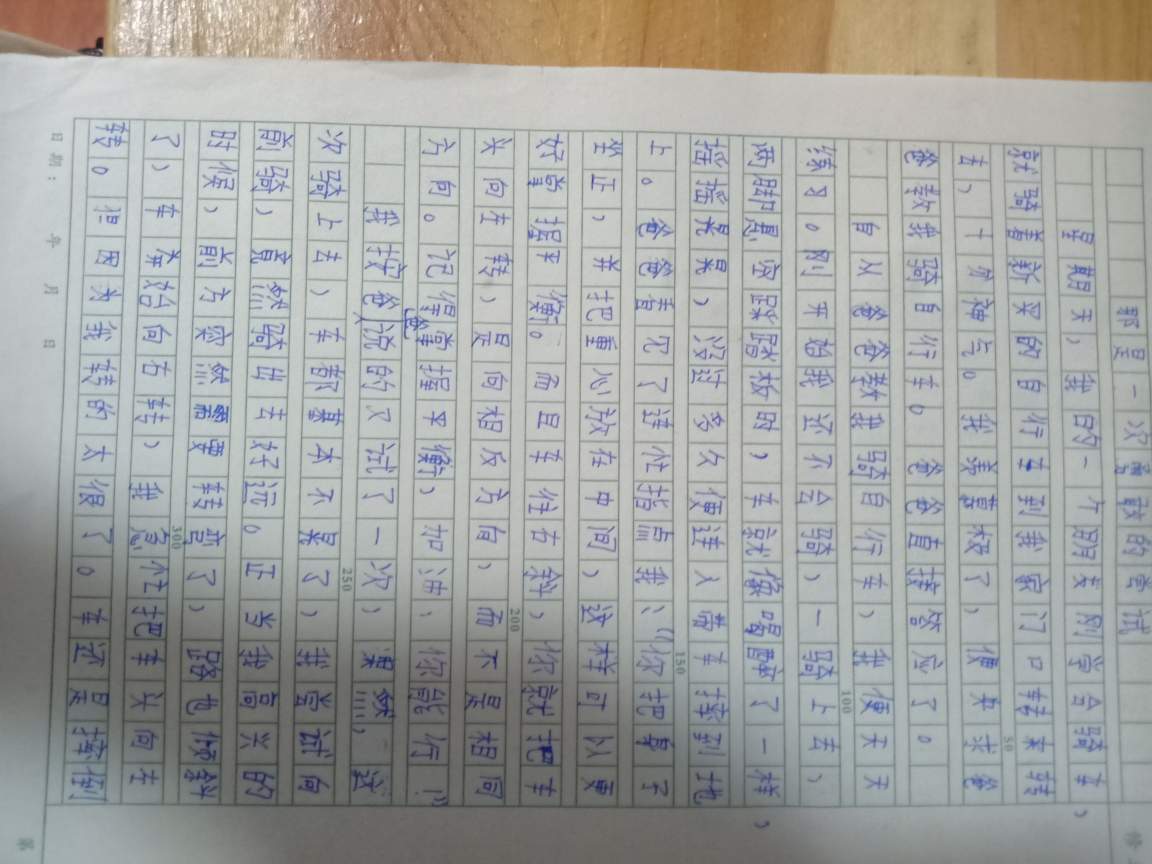 那是一次勇敢的尝试
星期天，我的一个朋友刚学会骑车，
就骑着新买的自行车到我家门口转来转
去，十分神气。我羡慕极了，便来求爸
爸教我骑自行车。爸爸直接答应了。
自从爸爸教我骑自行车，我便天天
练习。刚开始我还不会骑，一骑上去，
两脚悬空踩踏板时，车就像喝醉了一样，
摇摇晃晃，没过多久便连人带车摔到地
上。爸爸看见了连忙指点我：“你把身子
坐正，并把重心放在中间，这样可以更
好掌握平衡。而且车往右斜，你就把车
头向左转，是向相反方向，而不是相同
方向。记得掌握平衡，加油，你能行！”
我按爸爸说的又试了一次，果然，这
次骑上去，车都基本不晃了，我尝试向
前骑，竟然骑出去好远。正当我高兴的
时候，前方突然需要转弯了，路也倾斜
了，车开始向右转，我急忙把车头向左
转。但因为我转的太狠了。车还是摔倒
50
100
150
200
250
300
日期： 年 月 日
第